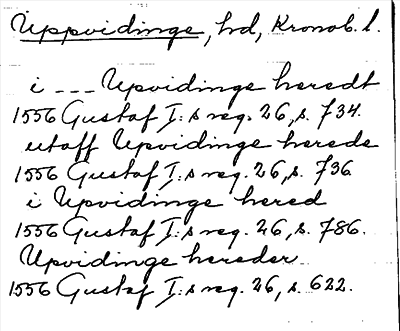 Uppvidinge, hd, Kronob. l.
i --- Upvidinge heredt
1556 Gustaf I:s reg. 26, s. 734.
utaff Upvidinge herede
1556 Gustaf I:s reg. 26, s. 736
i Upvidinge hered
1556 Gustaf I:s reg. 26, s. 786.
Upvidinge hereder
1556 Gustaf I:s reg. 26, s. 622.